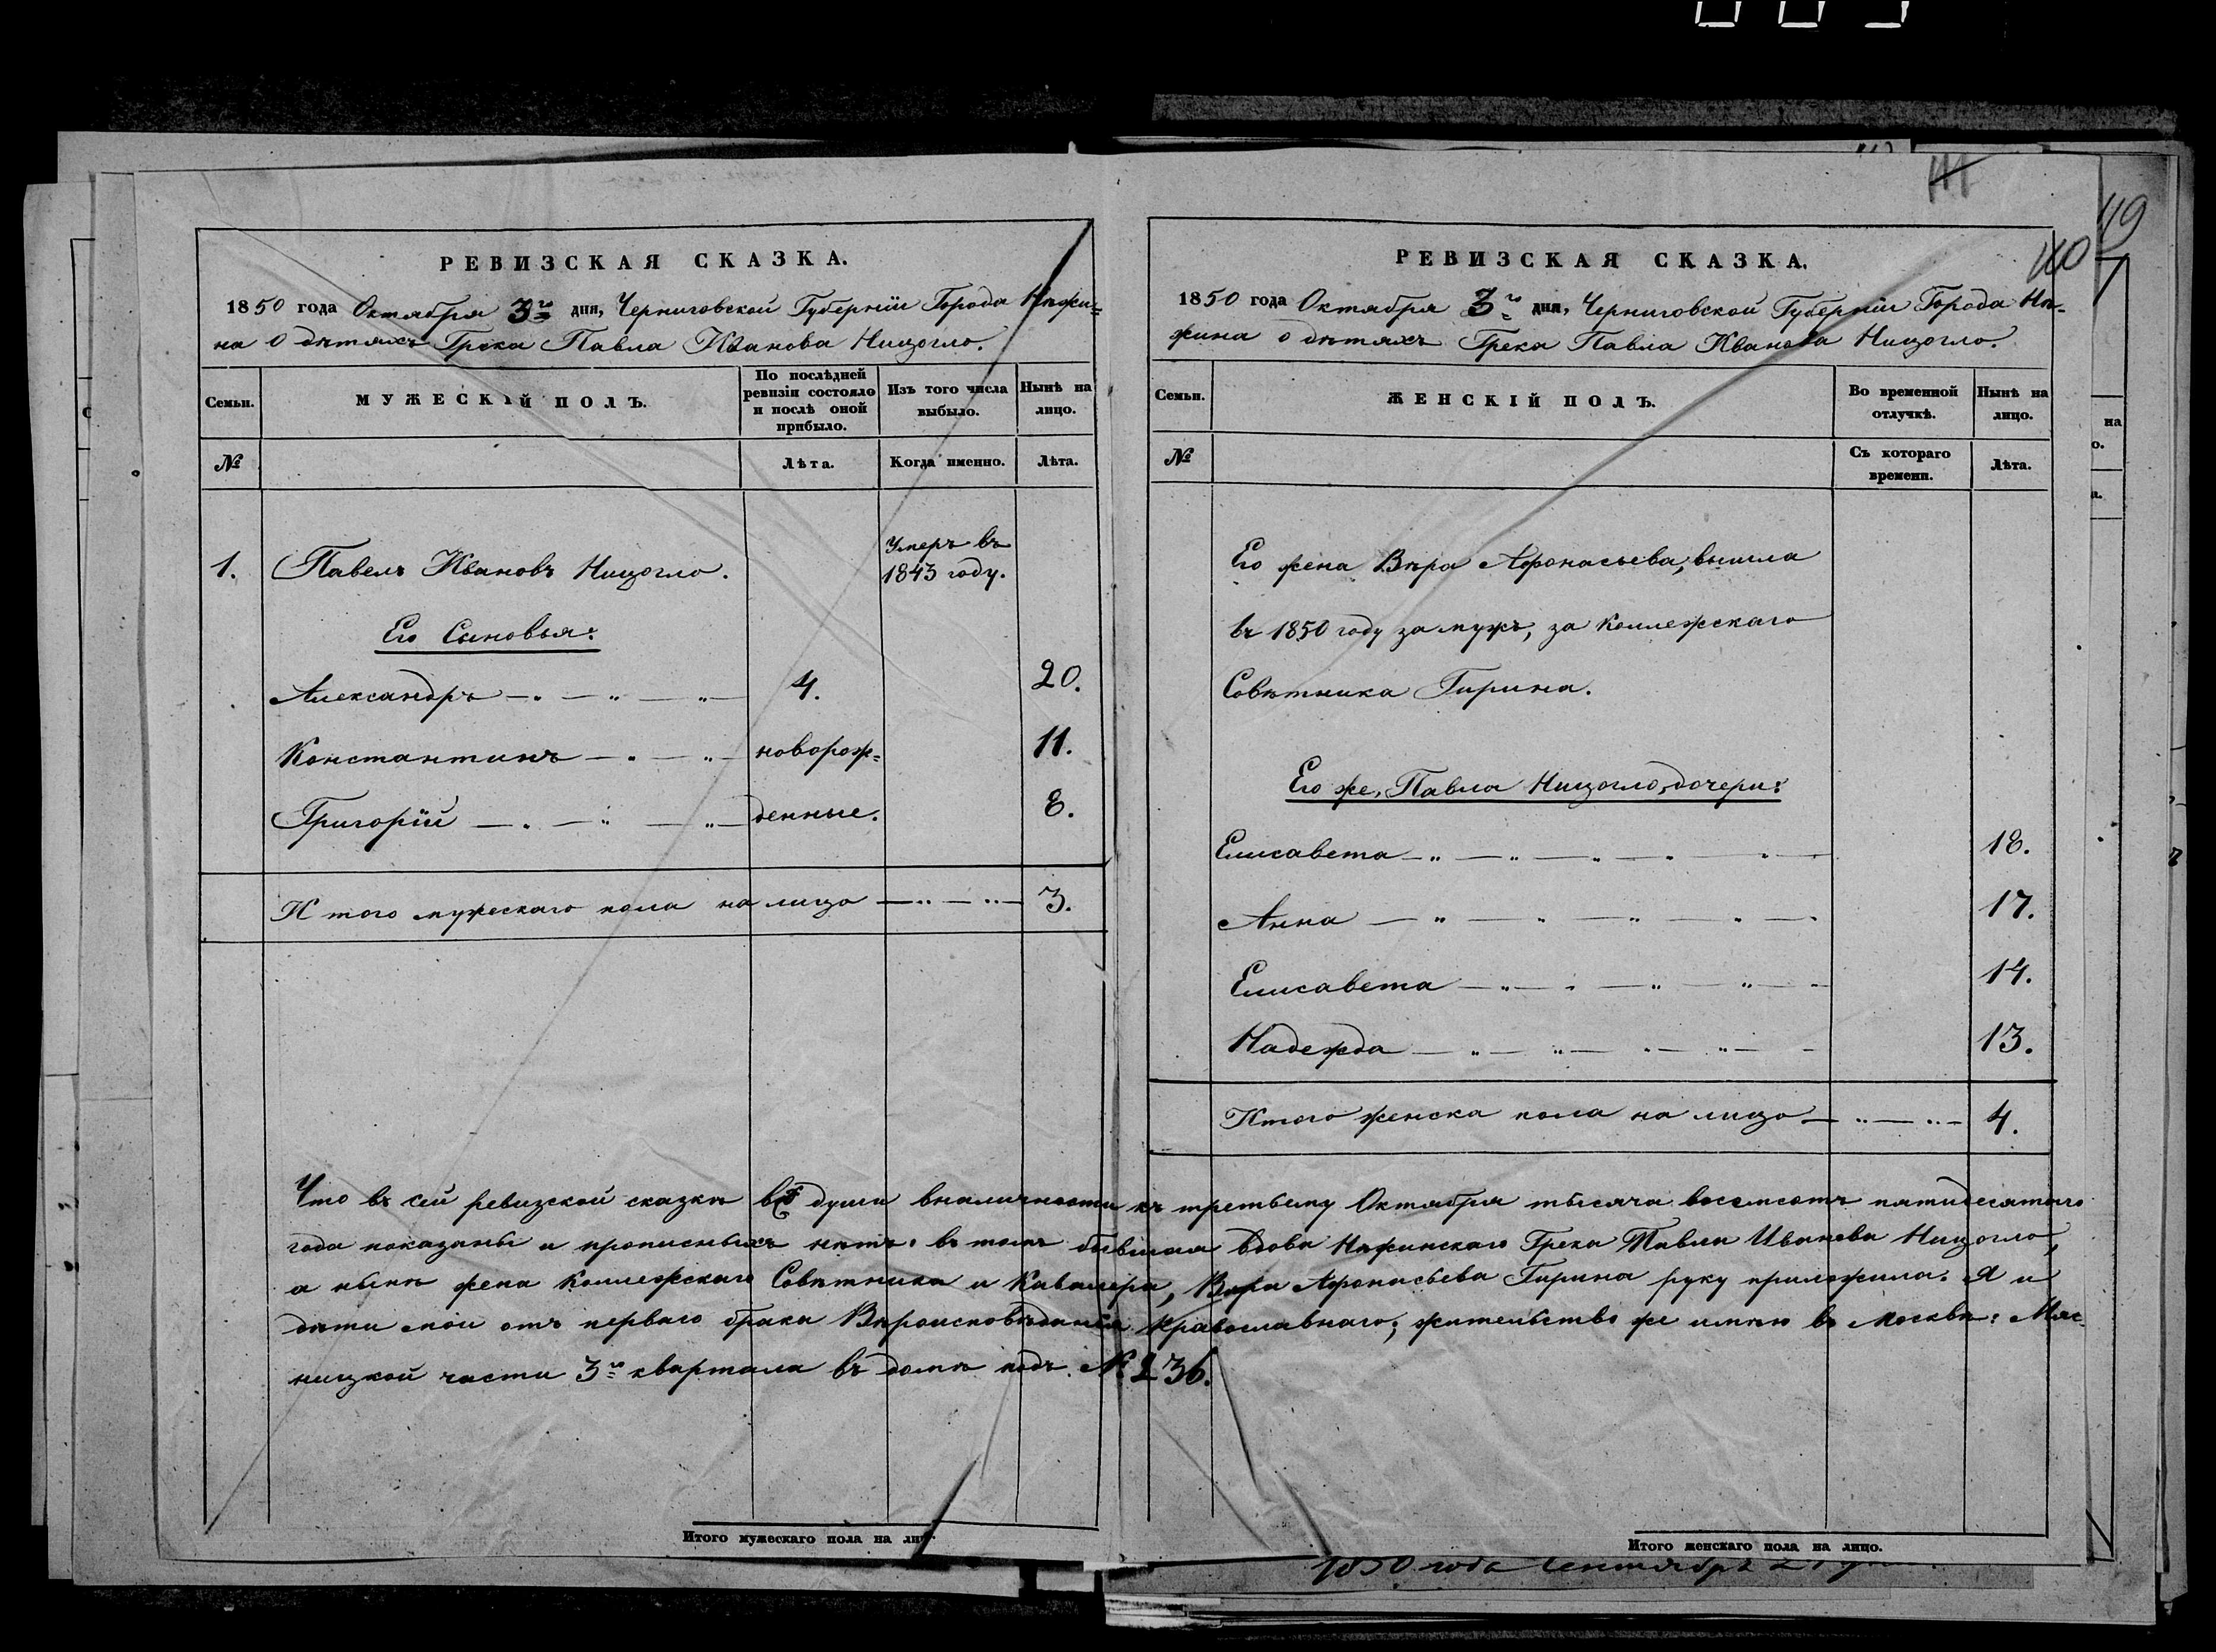 111
119
110
РЕВИЗСКАЯ СКАЗКА.
1850 года Октября 3го дня, Черниговской Губернїи Города Нѣжи=
на о дѣтяхъ Грека Павла Иванова Ницогло.
Семьи.
МУЖЕСКІЙ ПОЛЪ.
По послѣдней ревизіи состояло и послѣ оной прибыло.
Изъ того числа выбыло.
Нынѣ на лицо.
№
Лѣта.
Когда именно.
Лѣта.
1. Павелъ Ивановъ Ницогло. Умеръ въ 1843 году.
Его Сыновья:
Александръ 4. 20.
Константинъ новорож= 11.
Григорїй денные. 8.
И того мужескаго пола на лицо 3.
РЕВИЗСКАЯ СКАЗКА.
1850 года Октября 3го дня, Черниговской Губернїи Города Нѣ-
жина о дѣтяхъ Грека Павла Иванова Ницогло.
Семьи.
ЖЕНСКІЙ ПОЛЪ.
Во временной отлучкѣ.
Нынѣ на лицо.
№
Съ котораго времени.
Лѣта.
Его жена Вѣра Афонасьева, вышла
въ 1850 году за мужъ, за Коллежскаго
Совѣтника Гирина.
Его же, Павла Ницогло, дочери:
Елисавета 18.
Анна 17.
Елисавета 14.
Надежда 13.
Итого женска пола на лицо 4.
Что въ сей ревизской сказкѣ всѣ души вналичности къ третьему Октября тысяча восемсотъ пятидесятого
года показаны и прописныхъ нѣтъ: въ томъ бывшая вдова Нѣжинскаго Грека Павла Иванова Ницогло,
а нынѣ жена Коллежскаго Совѣтника и Кавалера, Вѣра Афонасьева Гирина руку приложила. Я и
дѣти мои отъ перваго брака Вѣроисповѣданія Православнаго; жительство же имѣю въ Москвѣ: Мяс-
ницкой части 3го квартала въ домѣ подъ № 236.
Итого мужескаго пола на лицо.
Итого женскаго пола на лицо.
1850 года Сентября